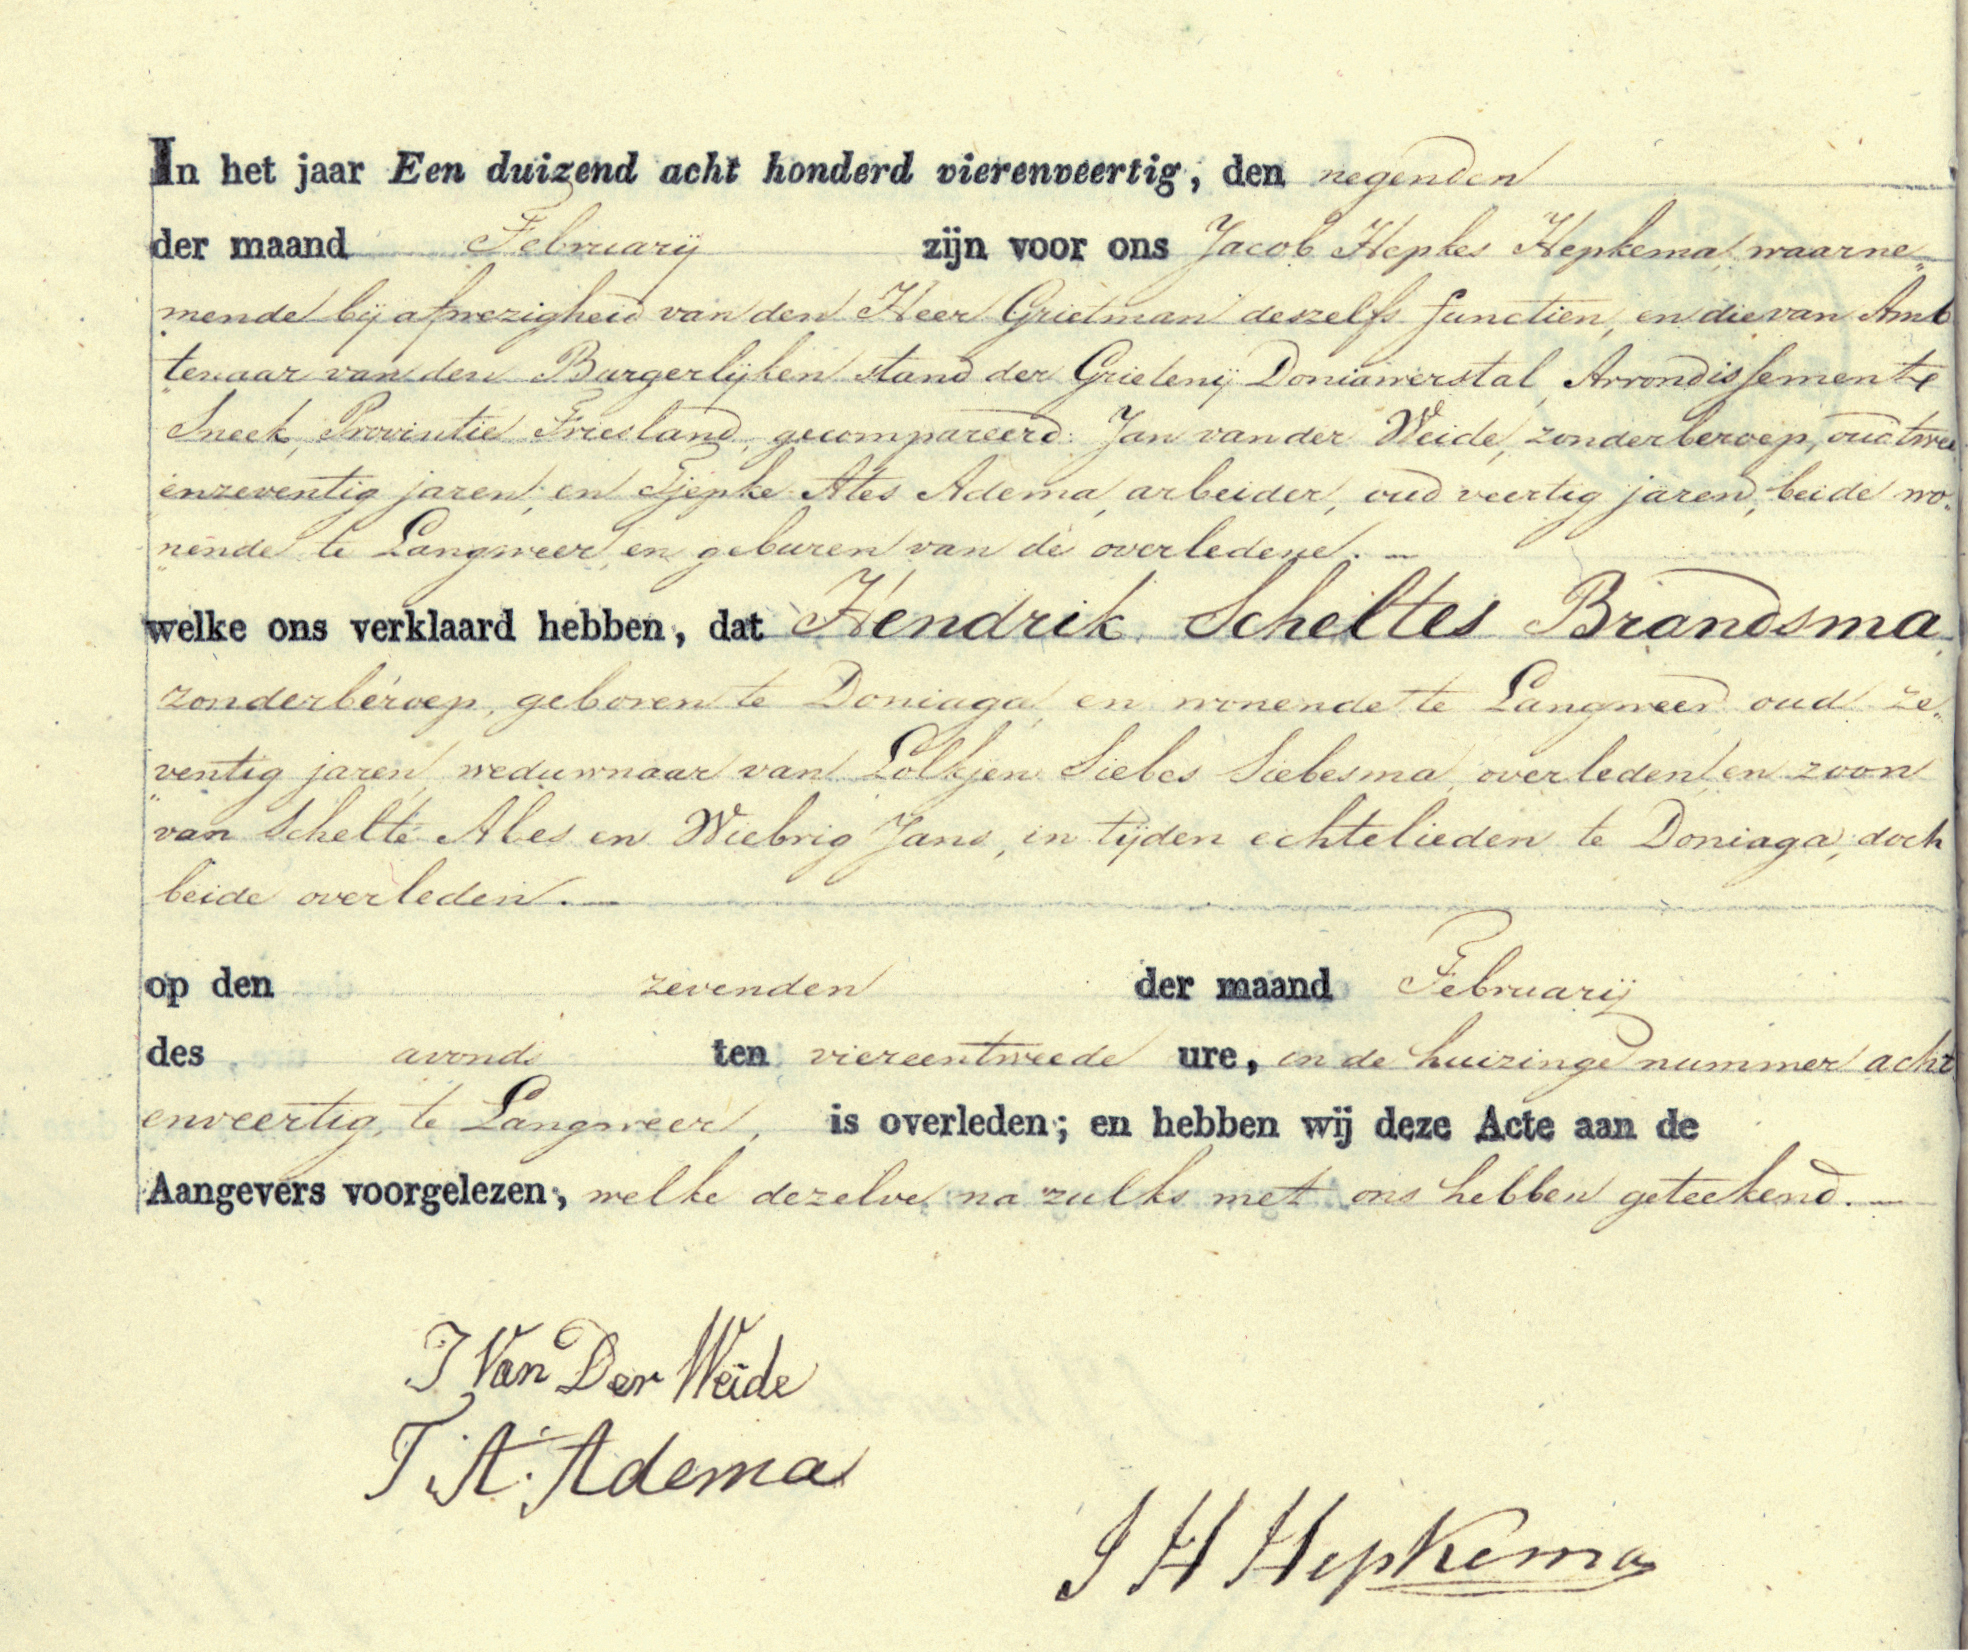 In het jaar Een duizend acht honderd vierenveertig, den negenden
der maand Februarij zijn voor ons Jacob Hepkes Hepkema, waarne„
„mende bij afwezigheid van den Heer Grietman deszelfs functien, en die van Amb
„tenaar van den Burgerlijken stand der Grietenij Doniawerstal, Arrondissemente
Sneek, Provintie Friesland, gecompareerd: Jan van der Weide, zonder beroep, oud twee
enzeventig jaren, en Tjepke Ates Adema, arbeider, oud veertig jaren, beide wo„
„nende te Langweer, en geburen van de overledene. —
welke ons verklaard hebben, dat Hendrik Scheltes Brandsma
zonder beroep, geboren te Doniaga, en wonende te Langweer oud ze„
„ventig jaren, weduwnaar van Lolkjen Siebes Siebesma, overleden, en zoon
van Schelte Abes en Wiebrig Jans, in tijden echtelieden te Doniaga, doch
beide overleden. —
op den zevenden der maand Februarij
des avonds ten viereentweede ure, in de huizinge nummer acht
enveertig, te Langweer, is overleden; en hebben wij deze Acte aan de
Aangevers voorgelezen, welke dezelve na zulks met ons hebben geteekend. —
J Van Der Weide
T. A. Adema
J H Hepkema